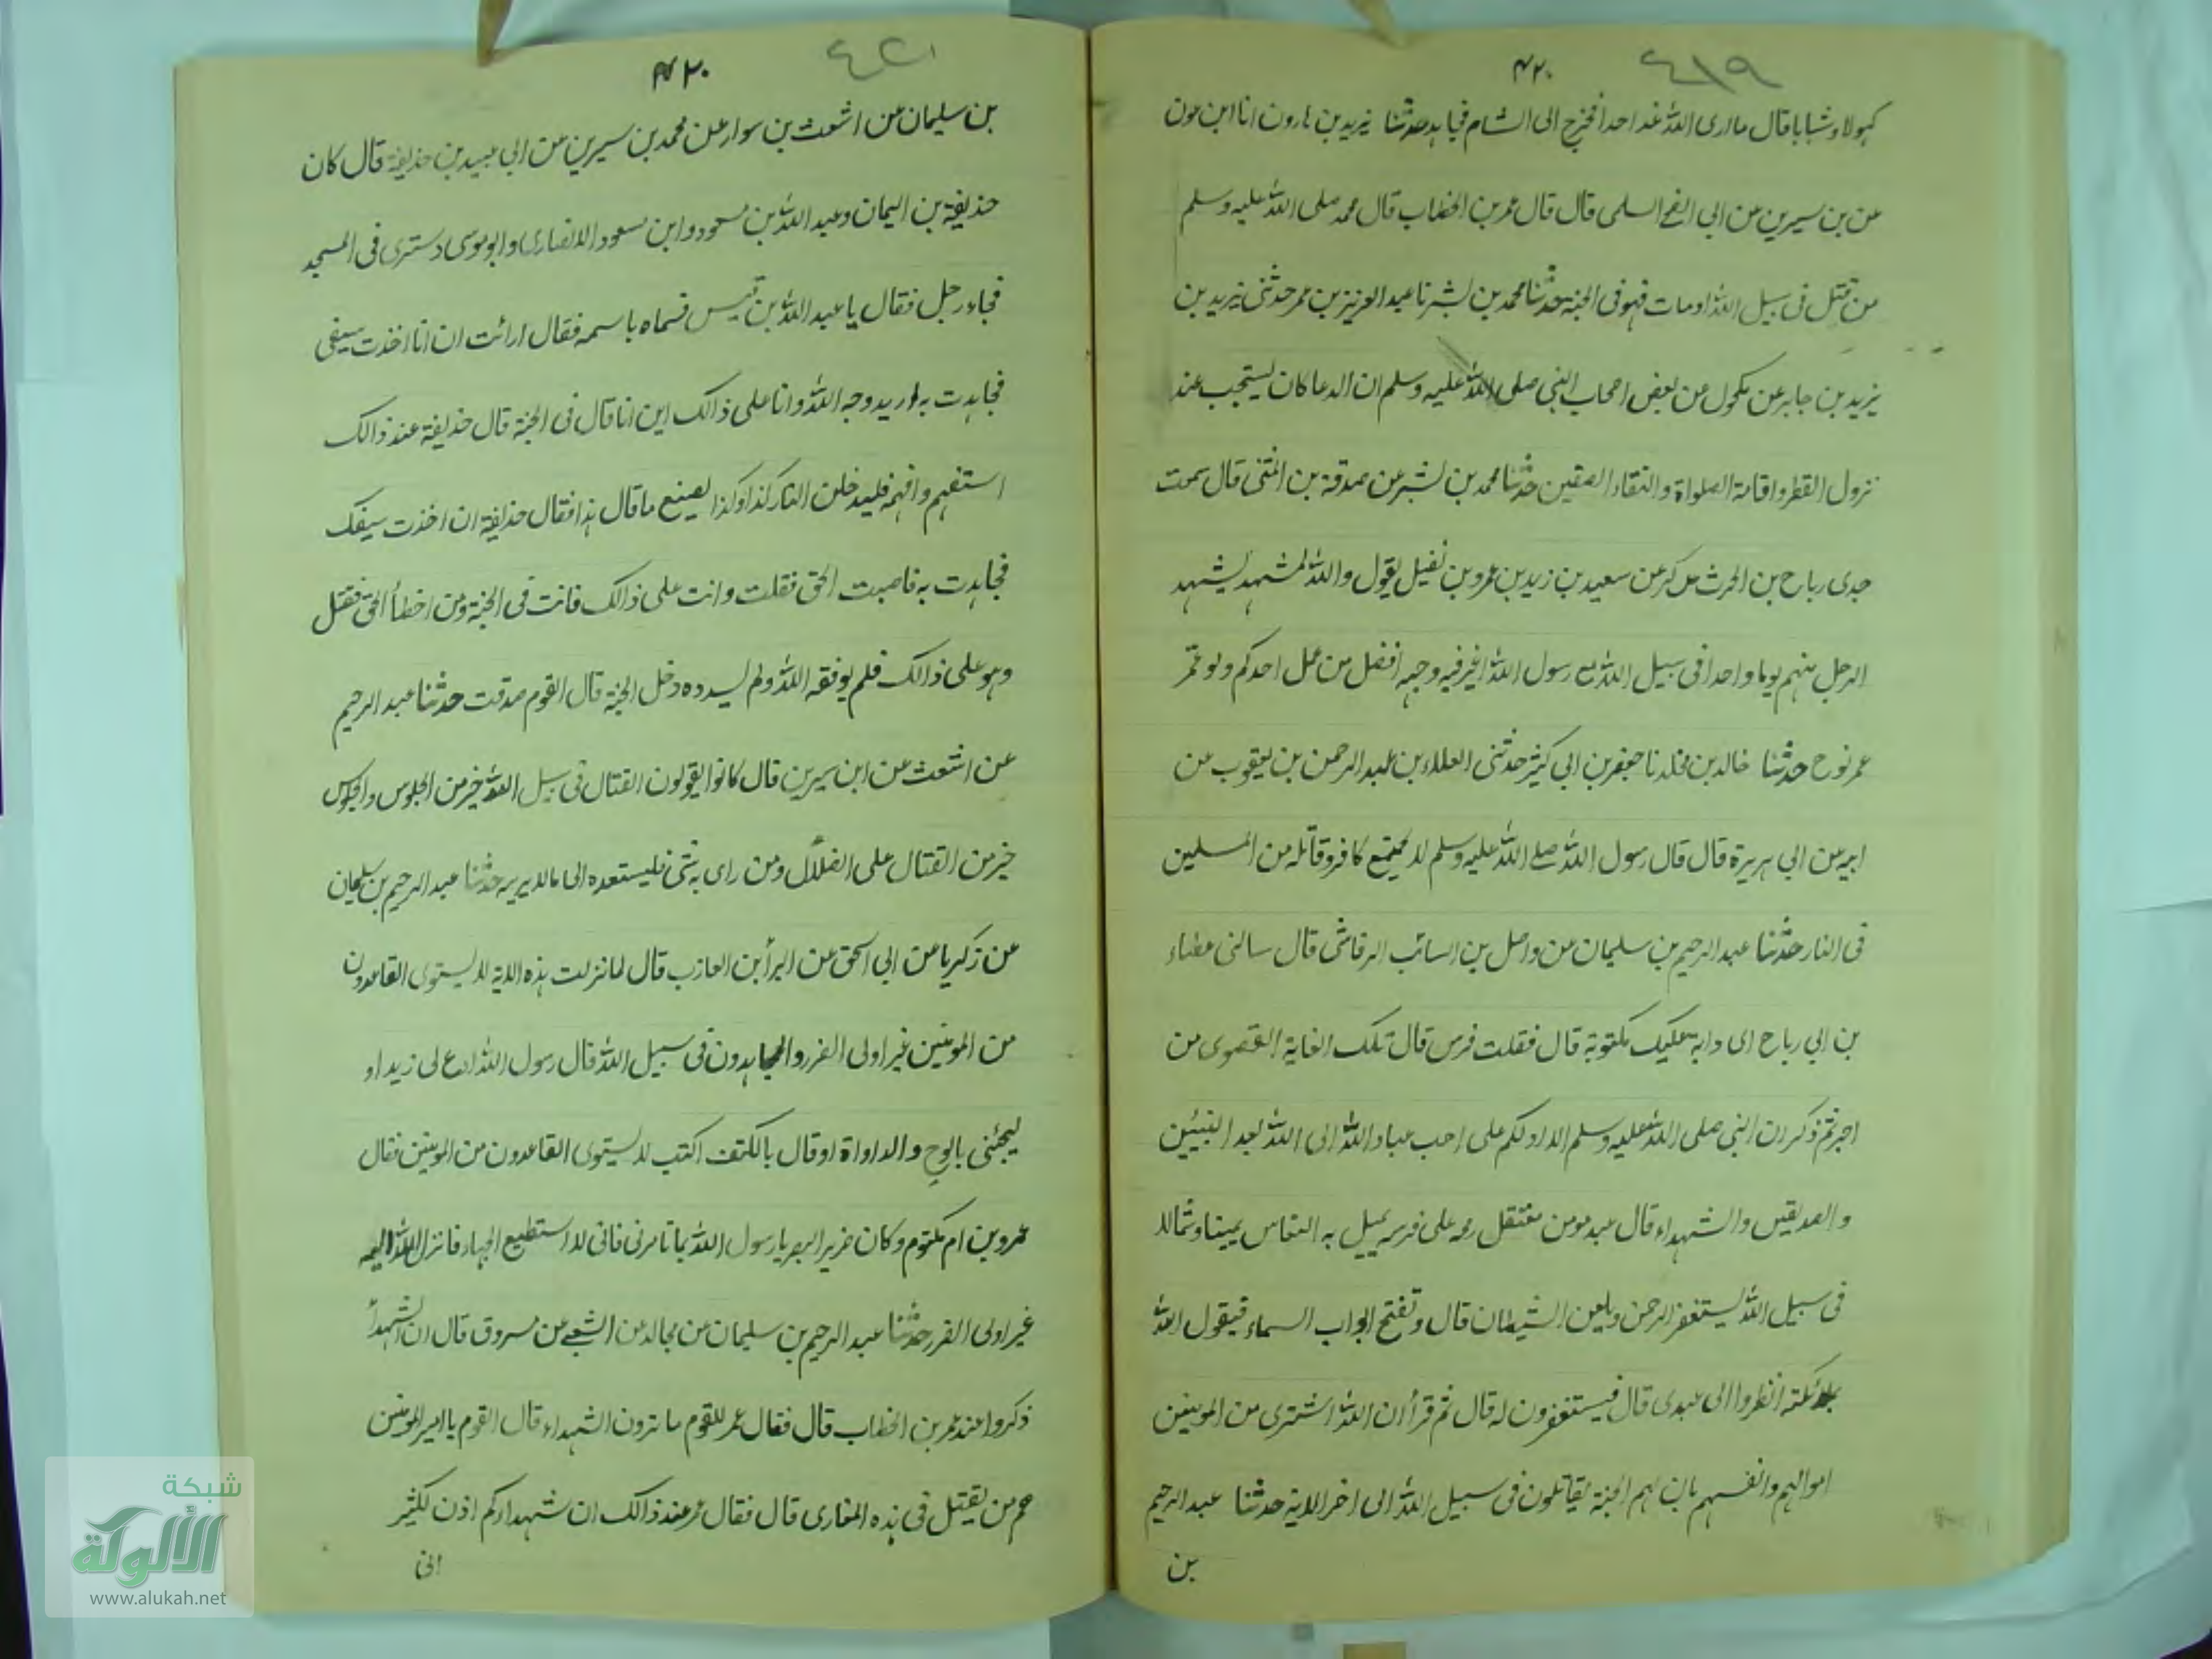 ٤١٩
٤٢٠
كهولا وشبابا قال ما ارى الله عذر احدا فخرج الى الشام فجاهد حدثنا يزيد بن هارون انا ابن عون
عن بن سيرين عن ابي العجفا السلمى قال قال عمر بن الخطاب قال محمد صلى الله عليه وسلم
من قتل فى سبيل الله او مات فهو فى الجنة حدثنا محمد بن بشر نا عبد العزيز بن عمر حدثنى يزيد بن
يزيد بن جابر عن مكحول عن بعض اصحاب النبى صلى الله عليه وسلم ان الدعا كان يستجب عند
نزول القطر واقامة الصلواة والتقاء الصفين حدثنا محمد بن بشر عن صدقة بن المثنى قال سمعت
جدى رباح بن الحرث يذكر عن سعيد بن زيد بن عمرو بن نفيل يقول والله لمشهد يشهد
الرجل منهم يوما واحدا فى سبيل الله مع رسول الله اغبر فيه وجهه افضل من عمل احدكم ولو عمر
عمر نوح حدثنا خالد بن مخلد نا جعفر بن ابي كثير حدثنى العلاء بن عبد الرحمن بن يعقوب عن
ابيه عن ابي هريرة قال قال رسول الله صلى الله عليه وسلم لا يجتمع كافر وقاتله من المسلمين
فى النار حدثنا عبد الرحيم بن سليمان عن واصل بن السائب الرقاشى قال سالنى عطاء
بن ابي رباح اى دابة عليك مكتوبة قال فقلت فرس قال تلك الغاية القصوى من
اجر ثم ذكر ان النبى صلى الله عليه وسلم الا ادلكم على احب عباد الله الى الله بعد النبيين
والصديقين والشهداء قال عبد مومن معتقل رمحه على فرسه يميل به النعاس يمينا وشمالا
فى سبيل الله يستغفر الرحمن ويلعن الشيطان قال وتفتح ابواب السماء فيقول الله
لملائكته انظروا الى عبدى قال فيستغفرون له قال ثم قرأ ان الله اشترى من المومنين
اموالهم وانفسهم بان لهم الجنة يقاتلون فى سبيل الله الى اخر الاية حدثنا عبد الرحيم
بن
٤٢١
٤٢٠
بن سليمان عن اشعث بن سوار عن محمد بن سيرين عن ابي عبيد بن حذيفة قال كان
حذيفة بن اليمان وعبد الله بن مسعود وابن مسعود الانصارى وابو موسى دسترى فى المسجد
فجاء رجل فقال يا عبد الله بن قيس فسماه باسمه فقال ارائت ان انا اخذت سيفى
فجاهدت به اريد وجه الله وانا على ذالك اين انا قال فى الجنة قال حذيفة عند ذالك
استفهم وافهمه فليدخلن النار كذا وكذا يصنع ما قال هذا فقال حذيفة ان اخذت سيفك
فجاهدت به فاصبت الحق فقلت وانت على ذالك فانت فى الجنة ومن اخطأ الحق فقتل
وهو على ذالك فلم يوفقه الله ولم يسدده دخل الجنة قال القوم صدقت حدثنا عبد الرحيم
عن اشعث عن ابن سيرين قال كانوا يقولون القتال فى سبيل الله خير من الجلوس والجلوس
خير من القتال على الضلال ومن راى به شى فليستعده الى ما لا يريبه حدثنا عبد الرحيم بن سليمان
عن زكريا عن ابي اسحق عن البرأ بن العازب قال لما نزلت هذه الاية لا يستوى القاعدون
من المومنين غير اولى الضرر والمجاهدون فى سبيل الله قال رسول الله ادع لى زيدا و
ليجئنى بالوح والداواة او قال بالكتف اكتب لا يستوى القاعدون من المومنين فقال
عمرو بن ام مكتوم وكان ضرير البصر يا رسول الله بما تامرنى فانى لا استطيع الجهاد فانزل الله اليه
غير اولى الضرر حدثنا عبد الرحيم بن سليمان عن مجالد عن الشعبے عن مسروق قال ان الشهدأ
ذكروا عند عمر بن الخطاب قال فقال عمر للقوم ما ترون الشهداء قال القوم يا امير المومنين
هم من يقتل فى هذه المغازى قال فقال عمر عند ذالك ان شهداءكم اذن لكثير
انى
شبكة
الألوكة
www.alukah.net